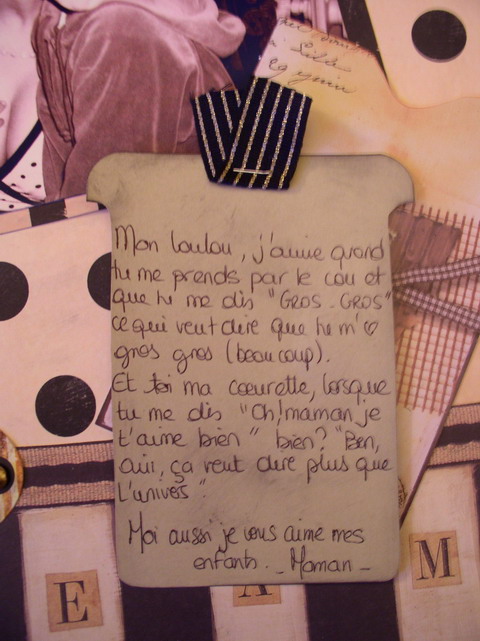 29 juin
Mon loulou, j'aime quand
tu me prends par le cou et
que tu me dis "GROS-GROS"
ce qui veut dire que tu m'♡
gros gros (beaucoup).
Et toi ma cœurette, lorsque
tu me dis "Oh! maman je
t'aime bien" bien? "Ben,
oui, ça veut dire plus que
l'univers"
Moi aussi je vous aime mes
enfants._Maman_
E A M